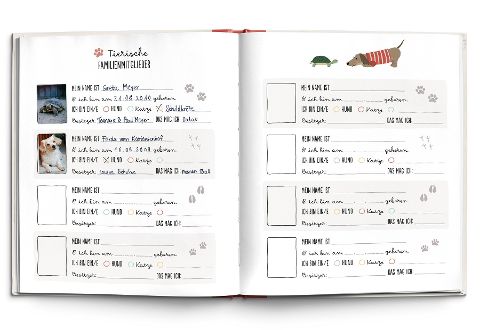 Tierische
FAMILIENMITGLIEDER
MEIN NAME IST Greta Meyer
& ich bin am geboren.
ICH BIN EIN/E HUND Katze Schildkröte
Besitzer: Meyer DAS MAG ICH: Salat
MEIN NAME IST
& ich bin am geboren.
ICH BIN EIN/E HUND Katze
Besitzer: DAS MAG ICH: Ball
MEIN NAME IST
& ich bin am geboren.
ICH BIN EIN/E HUND Katze
Besitzer: DAS MAG ICH:
MEIN NAME IST
& ich bin am geboren.
ICH BIN EIN/E HUND Katze
Besitzer: DAS MAG ICH:
MEIN NAME IST
& ich bin am geboren.
ICH BIN EIN/E HUND Katze
Besitzer: DAS MAG ICH:
MEIN NAME IST
& ich bin am geboren.
ICH BIN EIN/E HUND Katze
Besitzer: DAS MAG ICH:
MEIN NAME IST
& ich bin am geboren.
ICH BIN EIN/E HUND Katze
Besitzer: DAS MAG ICH:
MEIN NAME IST
& ich bin am geboren.
ICH BIN EIN/E HUND Katze
Besitzer: DAS MAG ICH: